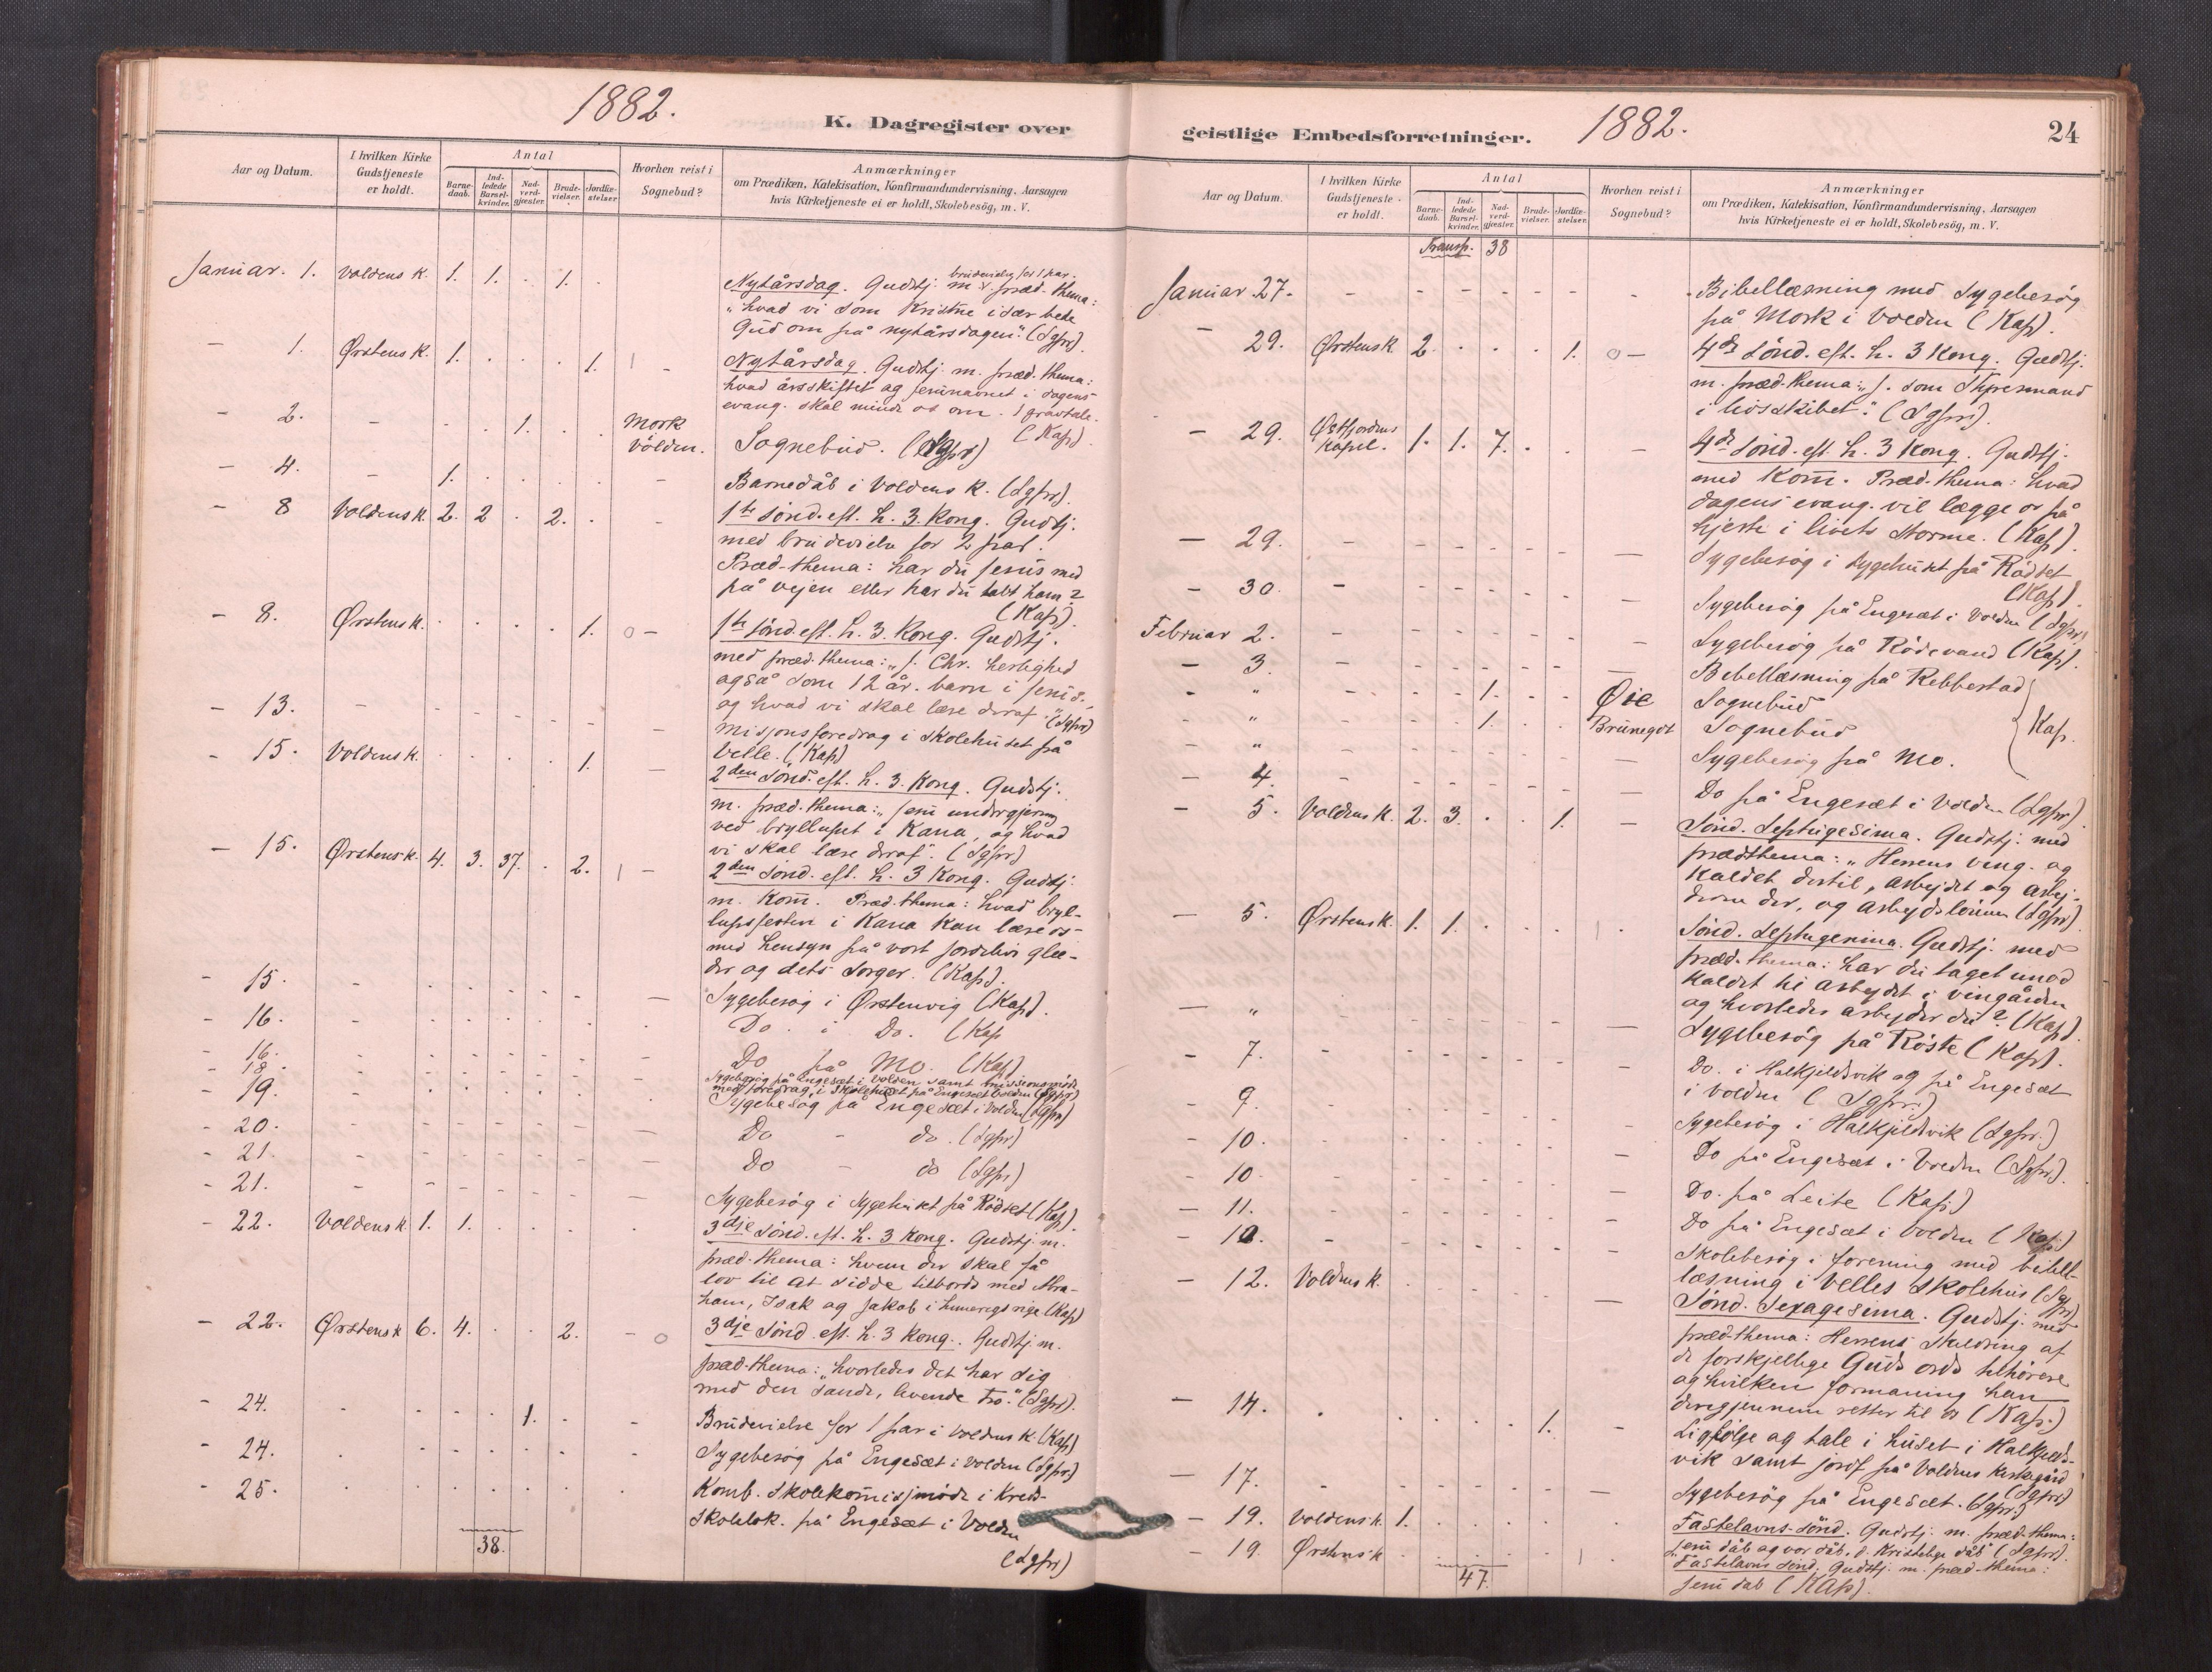 1882.
K. Dagregister over
Aar og Datum.
I hvilken Kirke Gudstjeneste er holdt.
Antal
Barnedaab.
Indledede Barselkvinder.
Nadverdgjæster.
Brudevielser.
Jordfæstelser
Hvorhen reist i Sognebud?
Anmærkninger
om Prædiken, Katekisation, Konfirmandundervisning, Aarsagen
hvis Kirketjeneste ei er holdt, Skolebesög, m. V.
Januar. 1. Voldens K. 1. 1. . 1. Nytårsdag. Gudstj. m. brudevielse for 1 par. præd. thema:
"hvad vi som Kristne især bede
Gud om på nytårsdagen." (Sgpr).
- 1. Ørstens K. 1. . . . 1. Nytårsdag. Gudstj. m. præd. thema:
hvad årsskiftet og Jesunavnet i dagens
evang. skal minde os om. 1 gravtale.
(Kap).
- 2. - . . 1. . . Mork Volden. Sognebud. (Sgpr)
- 4. - 1. Barnedåb i Voldens K. (Sgpr).
- 8 Voldens K. 2. 2 . 2. . 1ste sönd. eft. h. 3. Kong. Gudstj.
med brudevielse for 2 par.
Præd-thema: har du Jesus med
på vejen eller har du tabt ham?
(Kap).
- 8. Ørstens K. . . . . 1. 0 - 1ste sönd. eft. h. 3. Kong. Gudstj.
med præd. thema: "J. Chr. herlighed
også som 12 år. barn i
og hvad vi skal lære deraf." (Sgpr)
- 13. Misjonsforedrag i skolehuset på
Velle. (Kap)
- 15. Voldens K. . . . . 1. 2den Sönd. eft. h. 3. Kong. Gudstj.
m. præd. thema: "Jesu undergjerning
ved brylluput i Kana, og hvad
vi skal lære deraf". (Sgpr)
- 15. Ørstens K. 4. 3. 37. . 2. 2den Sönd. eft. h. 3 Kong. Gudstj.
m. Kom̄. Præd. thema: hvad bryl-
lupsfesten i Kana kan lære os
med hensyn på vort jordelivs glæ-
der og dets sorger. (Kap).
- 15. Sygebesög i Ørstenvig (Kap).
- 16. Do. i Do. (Kap
- 16. Do på Mo. (Kap)
- 18. Sygebesög på Engesæt i Volden samt missionsmöde
med foredrag i Skolehuset på Engesæt Volden (Sgpr)
- 19. Sygebesög på Engesæt i Volden (Sgpr)
- 20. Do - do. (Sgpr)
- 21. Do - do (Sgpr)
- 21. Sygebesög i Sygehuset på Rödset (Kap).
- 22. Voldens K 1. 1. 3dje Sönd. eft. h. 3 Kong. Gudstj. m.
præd-thema: hvem der skal få
lov til at sidde tilbords med Abra-
ham, Isak og Jakob i himmerigs rige (Kap)
- 22. Ørstens K 6. 4. . . 2. - 0 3dje Sönd. eft. h. 3 Kong. Gudstj. m.
præd-thema: "hvorledes det har sig
med den sande, levende tro." (Sgpr).
- 24. 1. Brudevielse for 1 par i Voldens K. (Kap)
- 24. Sygebesög på Engesæt i Volden (Sgpr.)
- 25. Komb. Skolekom̄isjmöde i Kreds-
skolelok. på Engesæt i Volden
(Sgpr)
38.
geistlige Embedsforretninger.
1882.
24
Aar og Datum.
I hvilken Kirke Gudstjeneste er holdt.
Antal
Barnedaab.
Indledede Barselkvinder.
Nadverdgjæster.
Brudevielser.
Jordfæstelser.
Hvorhen reist i Sognebud?
Anmærkninger
om Prædiken, Katekisation, Konfirmandundervisning, Aarsagen
hvis Kirketjeneste ei er holdt, Skolebesög, m. V.
Transp. 38
Januar 27. Bibellæsning med Sygebesög
på Mork i Volden (Kap).
- 29. Ørstens K. 2. . . . 1. 0 - 4de sönd. eft. h. 3 Kong. Gudstj.
m. præd-thema: "J. som Styresmand
i livsskibet." (Sgpr).
- 29. Østfjordens Kapel. 1. 1. 7. 4de sönd. eft. h. 3 Kong. Gudstj.
med Kom̄. Præd. thema: hvad
dagens evang. vil lægge os på
hjerte i livets storme. (Kap).
- 29. Sygebesög i Sygehuset på Rödset
(Kap).
- 30. Sygebesög på Engesæt i Volden (Sgpr)
Februar 2. Sygebesög på Rödevand (Kap).
- 3. Bibellæsning på Rebbestad
- " 1. Øie Sognebud
- " 1. Brunegot Sognebud Kap.
- " Sygebesög på Mo.
- 4. Do på Engesæt i Volden (Sgpr)
- 5. Voldens K. 2. 3. . . 1. Sönd. Septuagesima. Gudstj. med
prædthema: "Herrens ving. og
kaldet dertil, arbejdet og arbej-
derne der, og arbejdslönnen (Sgpr).
- 5. Ørstens K. 1. 1. Sönd. Septuagesima. Gudstj. med
præd.-thema: har du taget imod
kaldet til arbejdet i vingården
og hvorledes arbejder du? (Kap).
- " Sygebesög på Röste (Kap).
- 7. Do. i Halkjeldsvik og på Engesæt
i Volden (Sgpr.)
- 9. Sygebesög i Halkjeldsvik (Sgpr.)
- 10. Do på Engesæt i Volden (Sgpr).
- 10. Do. på Leite (Kap.)
- 11. Do på Engesæt i Volden (Kap.)
- 12. Skolebesög i forening med bibel-
læsning i Velles Skolehus (Sgpr)
- 12. Voldens K. Sönd. Sexagesima. Gudstj. med
præd-thema: Herrens Skildring af
de forskjellige Guds ords tilhörere
og hvilken formaning han
derigjennem retter til os (Kap.)
- 14. 1. Ligfölge og tale i huset i Halkjelds-
vik samt jordf på Voldens Kirkegård
(Sgpr)
- 17. Sygebesög på Engesæt. (Sgpr.)
- 19. Voldens K. 1. Fastelavns-sönd. Gudstj. m. præd-thema:
"Jesu dåb og vor dåb, d. Kristelige dåb" (Sgpr).
- 19. Ørstens K Fastelavns sönd. Gudstj. m. præd-thema:
Jesu dåb (Kap).
47.